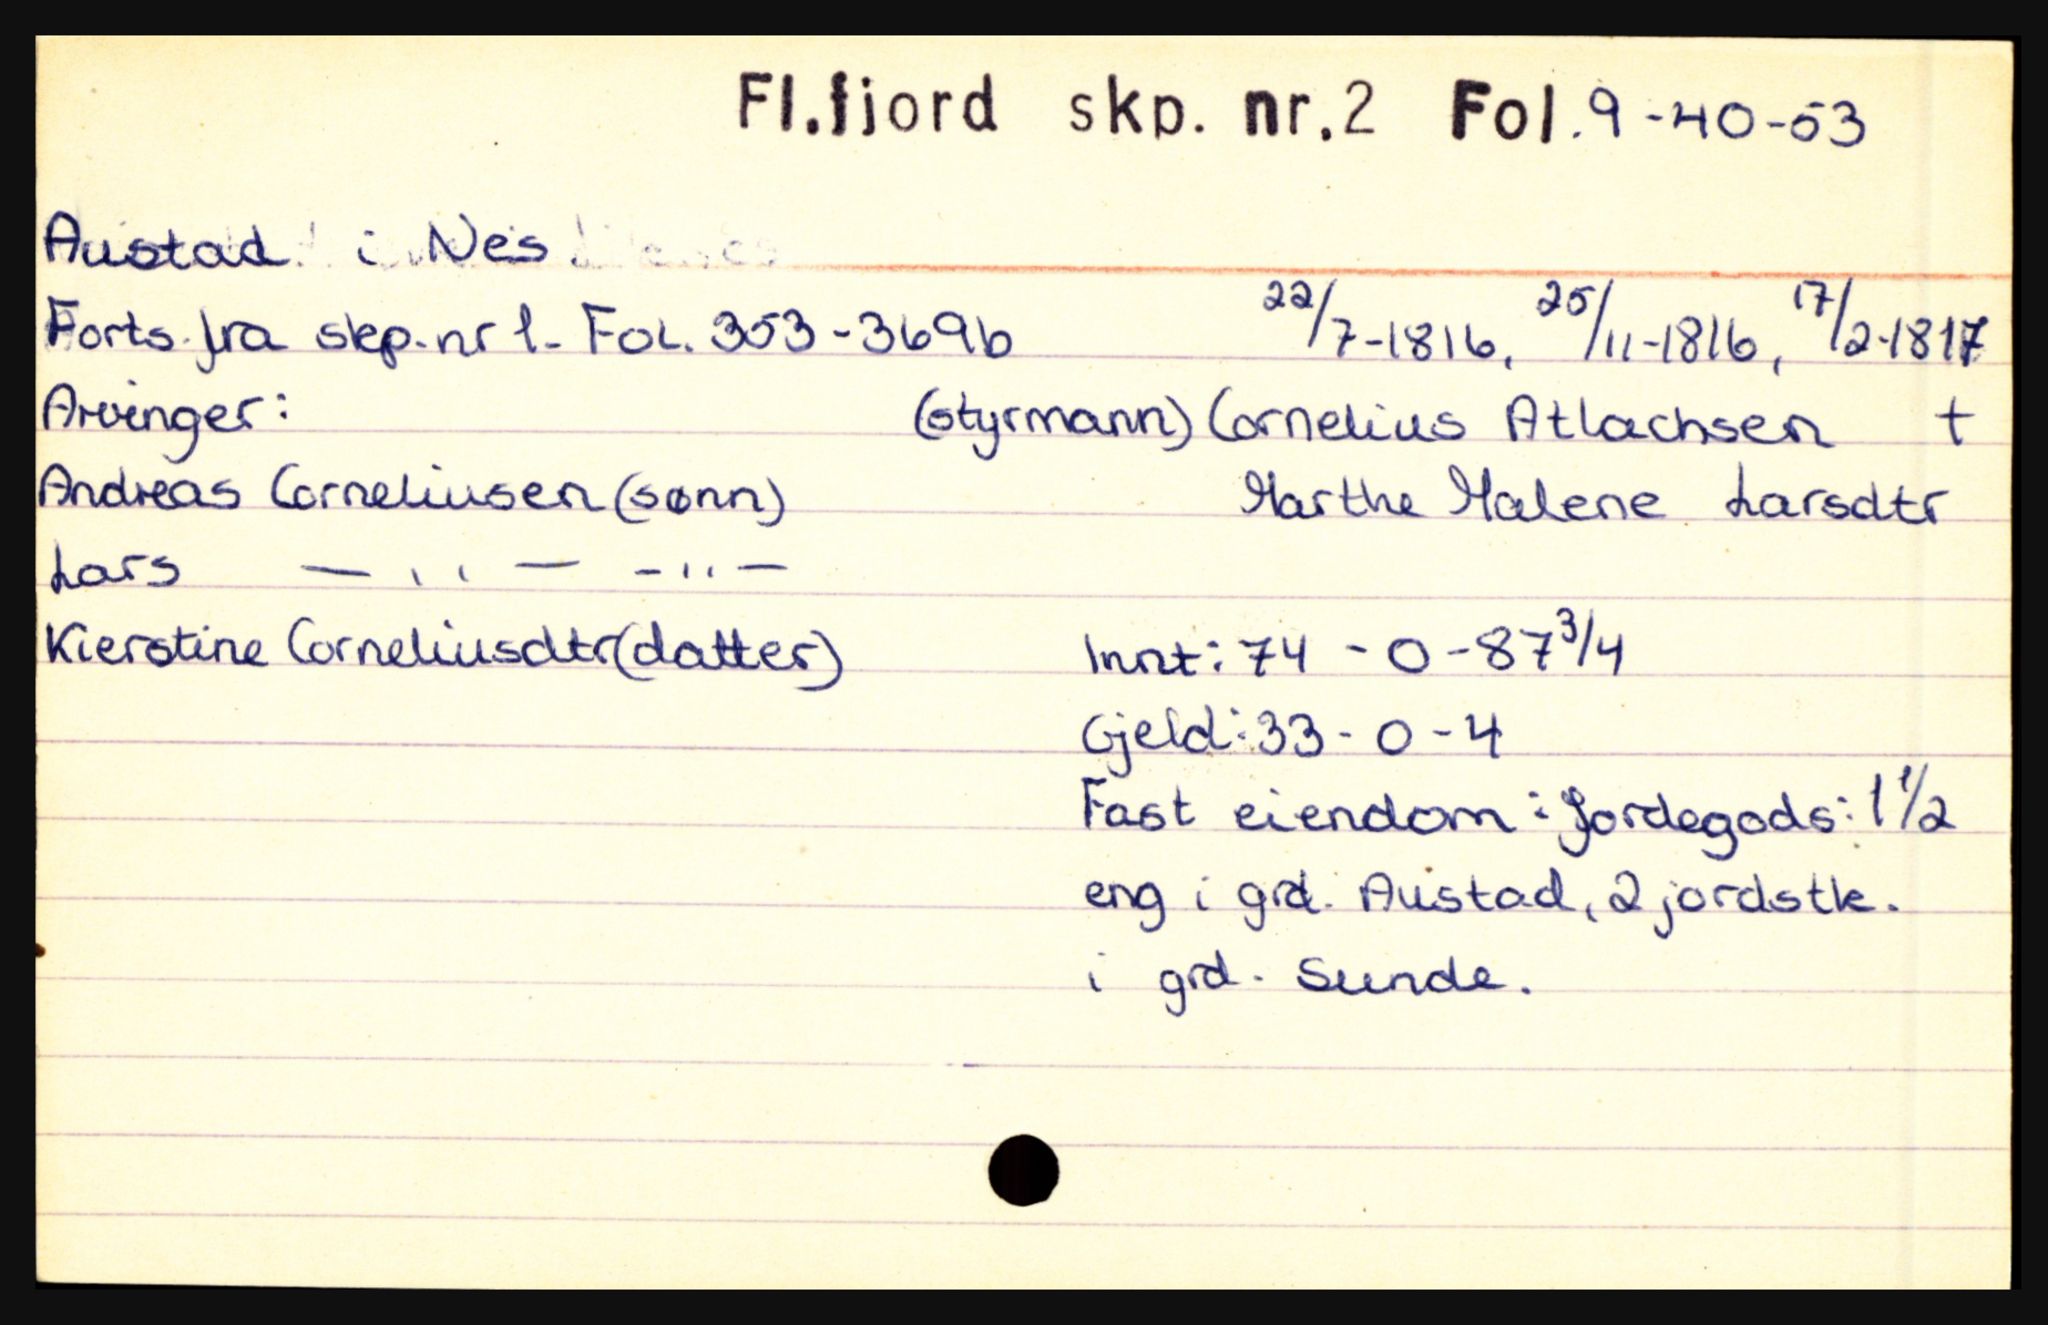 Fl.fjord skp. nr.2 Fol.9-40-53
Austad i Nes
Forts. fra skp. nr 1. Fol. 353-369b 22/7-1816, 25/11-1816, 17/2-1817
Arvinger: (styrmann) Cornelius Atlachsen †
Andreas Corneliusen (sønn) Marthe Malene Larsdtr
Lars — ,, — - ,, —
Kierstine Corneliusdtr (datter) Innt: 74 - 0 - 87 3/4
Gjeld: 33 - 0 - 4
Fast eiendom: Jordegods: 1 1/2
eng i grd. Austad, 2 jordstk.
i grd. Sunde.